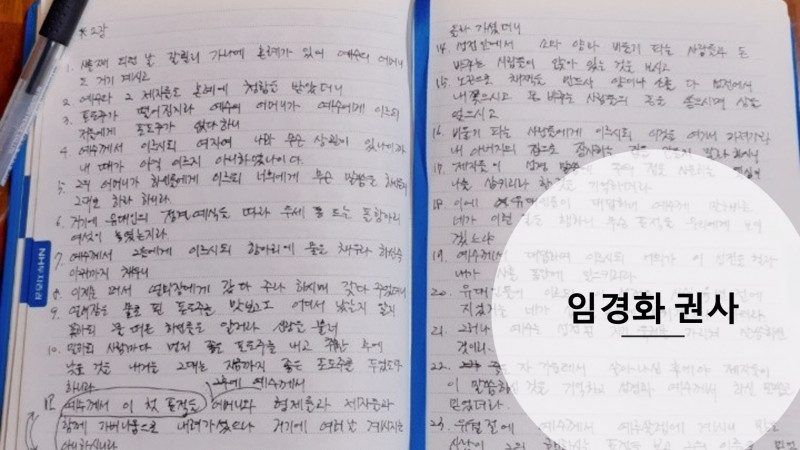 ※ 2장
1. 사흘째 되던 날 갈릴리 가나에 혼례가 있어 예수의 어머니
도 거기 계시고
2. 예수와 그 제자들도 혼례에 청함을 받았더니
3. 포도주가 떨어진지라 예수의 어머니가 예수에게 이르되
저들에게 포도주가 없다 하니
4. 예수께서 이르시되 여자여 나와 무슨 상관이 있나이까
내 때가 아직 이르지 아니하였나이다.
5. 그의 어머니가 하인들에게 이르되 너희에게 무슨 말씀을 하시든지
그대로 하라 하니라.
6. 거기에 유대인의 정결 예식을 따라 두세 통 드는 돌항아리
여섯이 놓였는지라
7. 예수께서 그들에게 이르시되 항아리에 물을 채우라 하신즉
아귀까지 채우니
8. 이제는 떠서 연회장에게 갖다 주라 하시매 갖다 주었더니
9. 연회장은 물로 된 포도주를 맛보고도 어디서 났는지 알지
못하되 물 떠온 하인들은 알더라 신랑을 불러
10. 말하되 사람마다 먼저 좋은 포도주를 내고 취한 후에
낮은 것을 내거늘 그대는 지금까지 좋은 포도주를 두었도다
하니라
그 후에 예수께서
12 예수께서 이 첫 표적을 어머니와 형제들과 제자들과
함께 가버나움으로 내려가셨으나 거기에 여러 날 계시지는
아니하시니라
올라가셨더니
14. 성전 안에서 소와 양과 비둘기 파는 사람들과 돈
바꾸는 사람들이 앉아 있는 것을 보시고
15. 노끈으로 채찍을 만드사 양이나 소를 다 성전에서
내쫓으시고 돈 바꾸는 사람들의 돈을 쏟으시며 상을
엎으시고
16. 비둘기 파는 사람들에게 이르시되 이것을 여기서 가져가라
내 아버지의 집으로 장사하는 집을 만들지 말라 하시니
17. 제자들이 성경 말씀에 주의 전을 사모하는 열심이
나를 삼키리라 한 것을 기억하더라.
18. 이에 유대인들이 대답하여 예수께 말하기를
네가 이런 일을 행하니 무슨 표적을 우리에게 보이
겠느냐
19. 예수께서 대답하여 이르시되 너희가 이 성전을 헐라
내가 사흘 동안에 일으키리라
20. 유대인들이
21. 그러나 예수는 성전된 자기 육체를 가리켜 말씀하신
것이라.
22. 죽은 자 가운데서 살아나신 후에야 제자들이
이 말씀하신 것을 기억하고 성경과 예수께서 하신 말씀을
믿었더라.
23. 유월절에 예수께서 예루살렘에 계시니 많은
사람이 그의 행하시는 표적을 보고 그의 이름을 믿었
임경화 권사